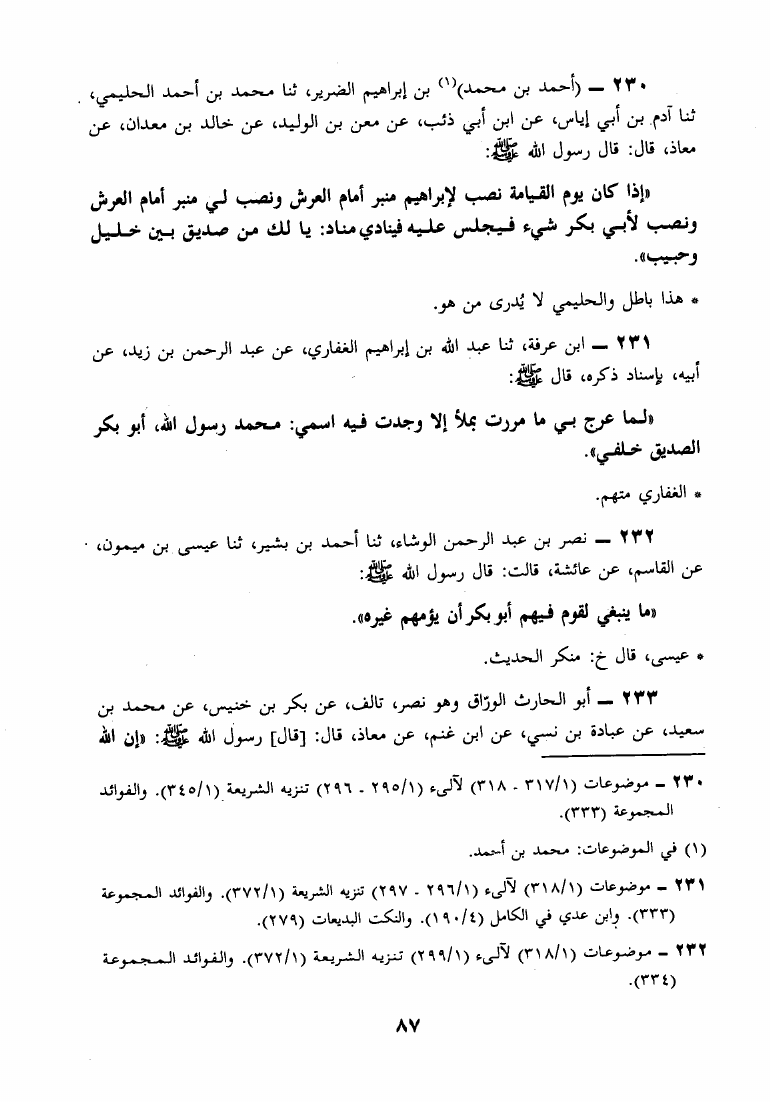 ٢٣٠ ــ (أحمد بن محمد)(١) بن إبراهيم الضرير، ثنا محمد بن أحمد الحليمي،
ثنا آدم بن أبي إياس، عن ابن أبي ذئب، عن معن بن الوليد، عن خالد بن معدان، عن
معاذ، قال: قال رسول الله ﷺ:
«إذا كان يوم القيامة نصب لإبراهيم منبر أمام العرش ونصب لي منبر أمام العرش
ونصب لأبي بكر شيء فيجلس عليه فينادي مناد: يا لك من صديق بين خليل
وحبيب».
* هذا باطل والحليمي لا يُدرى من هو.
٢٣١ ــ ابن عرفة، ثنا عبد الله بن إبراهيم الغفاري، عن عبد الرحمن بن زيد، عن
أبيه، بإسناد ذكره، قال ﷺ:
«لما عرج بي ما مررت بملأ إلا وجدت فيه اسمي: محمد رسول الله، أبو بكر
الصديق خلفي».
* الغفاري متهم.
٢٣٢ ــ نصر بن عبد الرحمن الوشاء، ثنا أحمد بن بشير، ثنا عيسى بن ميمون،
عن القاسم، عن عائشة، قالت: قال رسول الله ﷺ:
«ما ينبغي لقوم فيهم أبو بكر أن يؤمهم غيره».
* عيسى، قال خ: منكر الحديث.
٢٣٣ ــ أبو الحارث الورّاق وهو نصر، تالف، عن بكر بن خنيس، عن محمد بن
سعيد، عن عبادة بن نسي، عن ابن غنم، عن معاذ، قال: [قال] رسول الله ﷺ: «إن الله
٢٣٠ ــ موضوعات (٣١٧/١ - ٣١٨) لآلىء (٢٩٥/١ - ٢٩٦) تنزيه الشريعة (٣٤٥/١). والفوائد
المجموعة (٣٣٣).
(١) في الموضوعات: محمد بن أحمد.
٢٣١ ــ موضوعات (٣١٨/١) لآلىء (٢٩٦/١ - ٢٩٧) تنزيه الشريعة (٣٧٢/١). والفوائد المجموعة
(٣٣٣). وابن عدي في الكامل (١٩٠/٤). والنكت البديعات (٢٧٩).
٢٣٢ ــ موضوعات (٣١٨/١) لآلىء (٢٩٩/١) تنزيه الشريعة (٣٧٢/١). والفوائد المجموعة
(٣٣٤).
٨٧